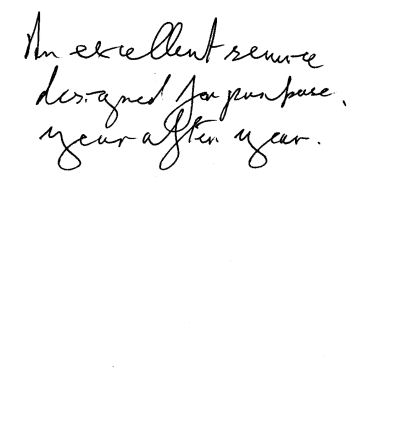 An excellent service
designed for purpose,
year after year.